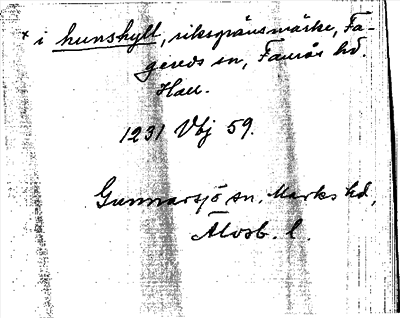 * i hunshyll, riksgränsmärke, Fa-
gereds sn, Faurås hd.
Hall.
1231 Vbj 59.
Gunnarsjö sn, Marks hd,
Älvsb. l.